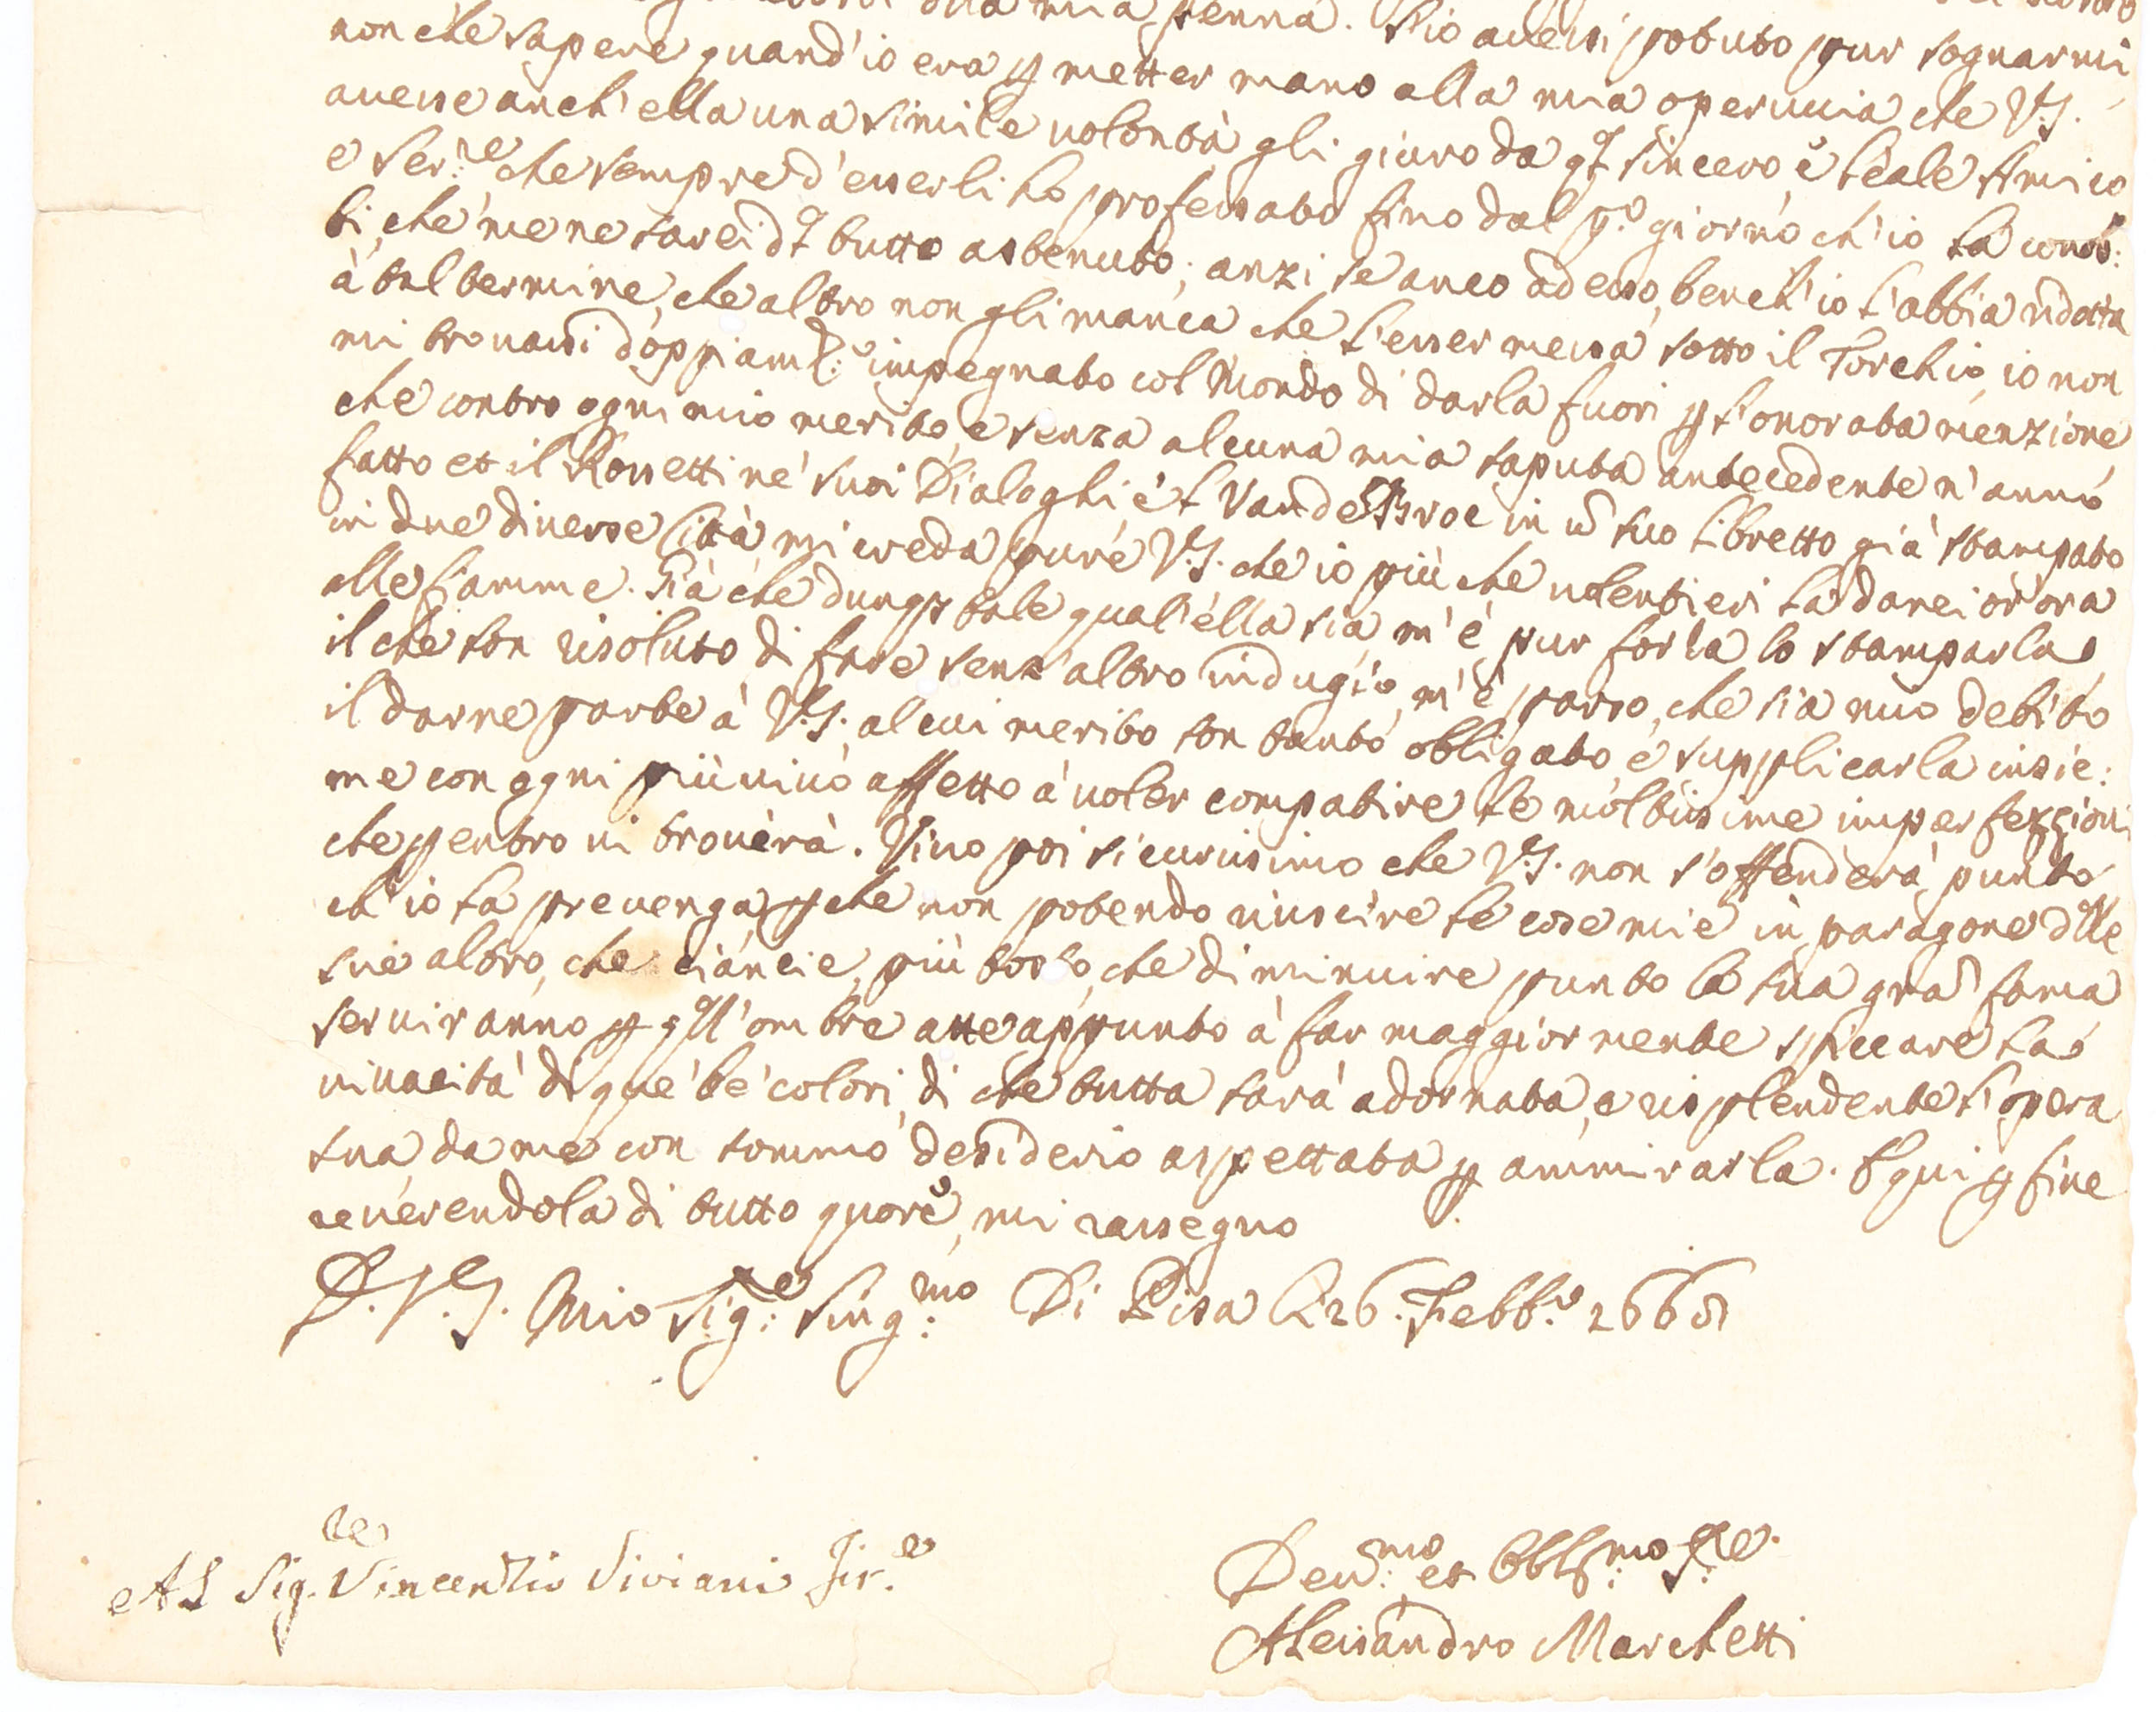 alla mia penna. S'io avessi potuto pur sognarmi
non che sapere quand'io era p metter mano alla mia operuccia che V.S.
avesse anch'ella una simile volontà gli giuro da ql sincero, e leale Amico
e Ser.re che sempre d'esserli ho professato fino dal p.o giorno ch'io la conob:
bi, che me ne sarei dl tutto astenuto; anzi se anco adesso, bench'io l'abbia ridotta
à tal termine, che altro non gli manca che l'esser messa sotto il Torchio, io non
mi trovassi doppiam.te impegnato col Mondo di darla fuori p l'onorata menzione
che contro ogni mio merito, e senza alcuna mia saputa antecedente n'anno
fatto et il Rossetti ne' suoi Dialoghi e'l Vanden Broe in u suo libretto già stampato
in due diverse Città, mi creda pure V.S. che io più che volentieri la darei or'ora
alle fiamme. Già che dunq; tale qual'ella sia m'è pur forza lo stamparla,
il che son risoluto di fare senz'altro indugio, m'è parso, che sia mio debito
il darne parte à V.S. al cui merito son tanto obbligato, e supplicarla insie:
me con ogni più vivo affetto à voler compatire le moltissime imperfezzioni
che pentro vi troverà. Vivo poi sicurissimo che V.S. non s'offenderà punto
ch'io la prevenga, p che non potendo riuscire le cose mie in paragone dlle
sue altro, che ciancie, più tosto, che diminuire punto la sua gra fama
serviranno p qll'ombre atte appunto à far maggiormente spiccare la
vivacità di que' be' colori, di che tutta sarà adornata, e risplendente l'opera
sua da me con sommo desiderio aspettata p ammirarla. E qui p fine
reverendola di tutto quore, mi rassegno
D. V. S. Mio Sig.re Sing.mo Di Pisa li 26. Febb.o 1668
Al Sig.re Vincenzio Viviani Fir.e
Dev.mo et Obbl.mo S.re
Alessandro Marchetti